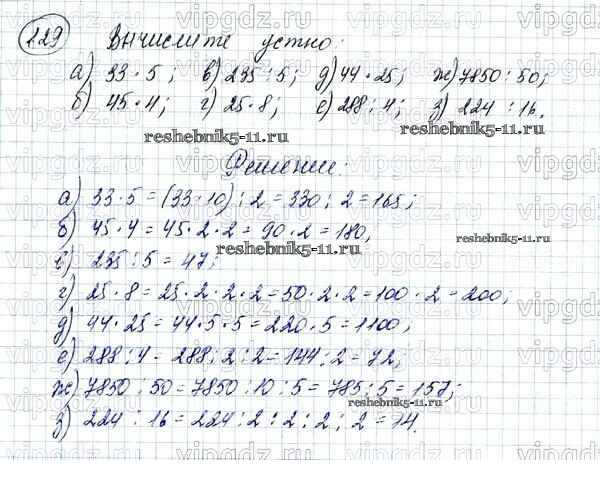 229 Вычислите устно:
а) 33 · 5; в) 235 : 5; д) 44 · 25; ж) 7850 : 50;
б) 45 · 4; г) 25 · 8; е) 288 : 4; з) 224 : 16.
reshebnik5-11.ru
reshebnik5-11.ru
Решение:
а) 33 · 5 = (33 · 10) : 2 = 330 : 2 = 165;
б) 45 · 4 = 45 · 2 · 2 = 90 · 2 = 180,
reshebnik5-11.ru
reshebnik5-11.ru
в) 235 : 5 = 47;
г) 25 · 8 = 25 · 2 · 2 · 2 = 50 · 2 · 2 = 100 · 2 = 200;
д) 44 · 25 = 44 · 5 · 5 = 220 · 5 = 1100;
е) 288 : 4 = 288 : 2 : 2 = 144 : 2 = 72,
ж) 7850 : 50 = 7850 : 10 : 5 = 785 : 5 = 157;
reshebnik5-11.ru
з) 224 : 16 = 224 : 2 : 2 : 2 : 2 = 14.